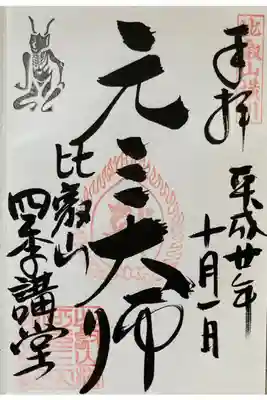 奉拝
平成廿年
十月一日
元三大師
比叡山
四季講堂
比叡山横川